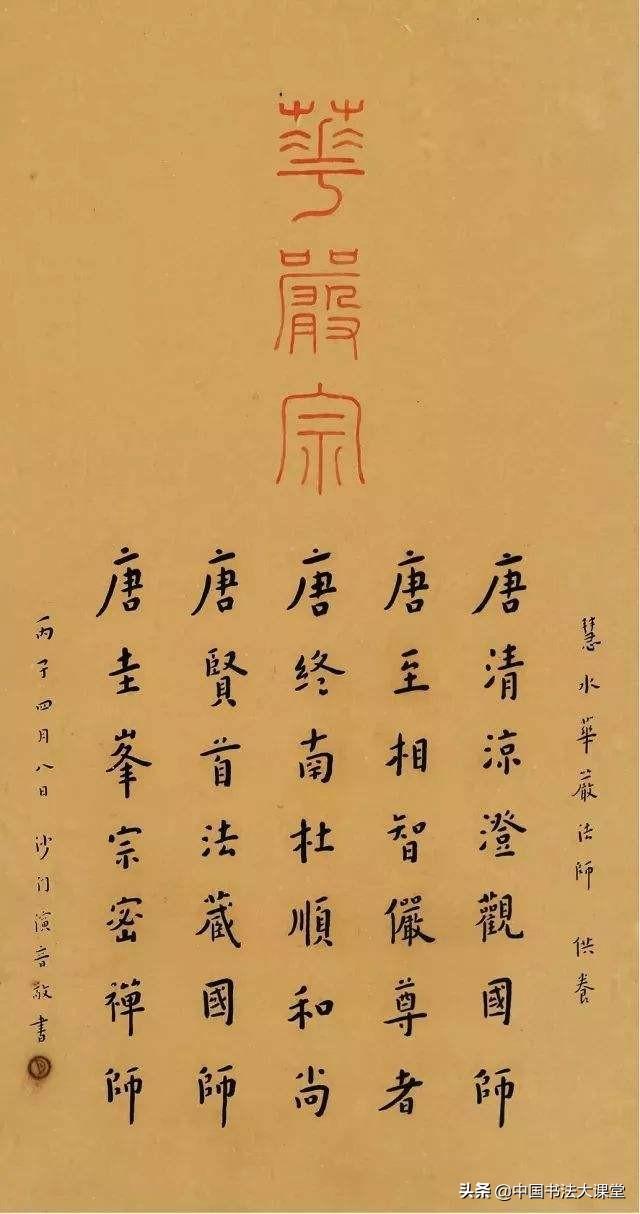 華嚴宗
慧水華嚴法師 供養
唐清涼澄觀國師
唐至相智儼尊者
唐終南杜順和尚
唐賢首法藏國師
唐圭峯宗密禪師
丙子四月八日 沙門演音敬書
头条 @中国书法大课堂